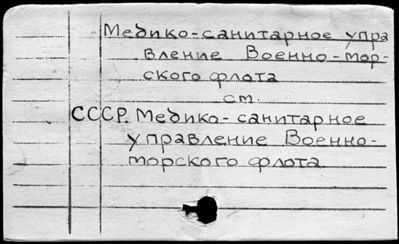 Медико-санитарное упра
вление Военно-мор-
ского флота
см.
СССР. Медико-санитарное
управление Военно-
морского флота